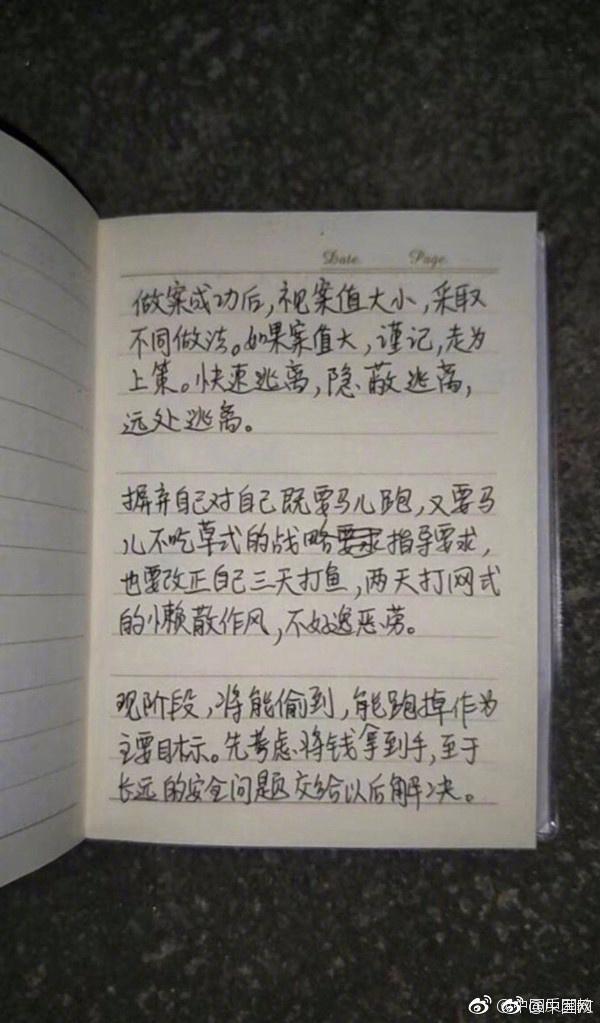 Date. Page.
做案成功后，视案值大小，采取
不同做法。如果案值大，谨记，走为
上策。快速逃离，隐蔽逃离，
远处逃离。
摒弃自己对自己既要马儿跑，又要马
儿不吃草式的战略要求指导要求，
也要改正自己三天打鱼，两天打网式
的懒散作风，不好逸恶劳。
现阶段，将能偷到，能跑掉作为
主要目标。先考虑将钱拿到手，至于
长远的安全问题交给以后解决。